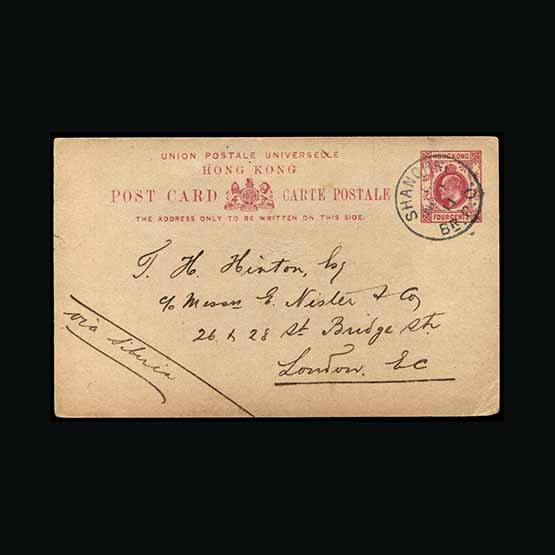 UNION POSTALE UNIVERSELLE
HONG KONG
POST CARD CARTE POSTALE
THE ADDRESS ONLY TO BE WRITTEN ON THIS SIDE.
HONG KONG
FOUR CENTS
SHANG
BR.
T. H. Hinton, Esq
c/o Messrs E. Nister & Co,
26 & 28 St. Bridge Str.
London. EC
via Siberia